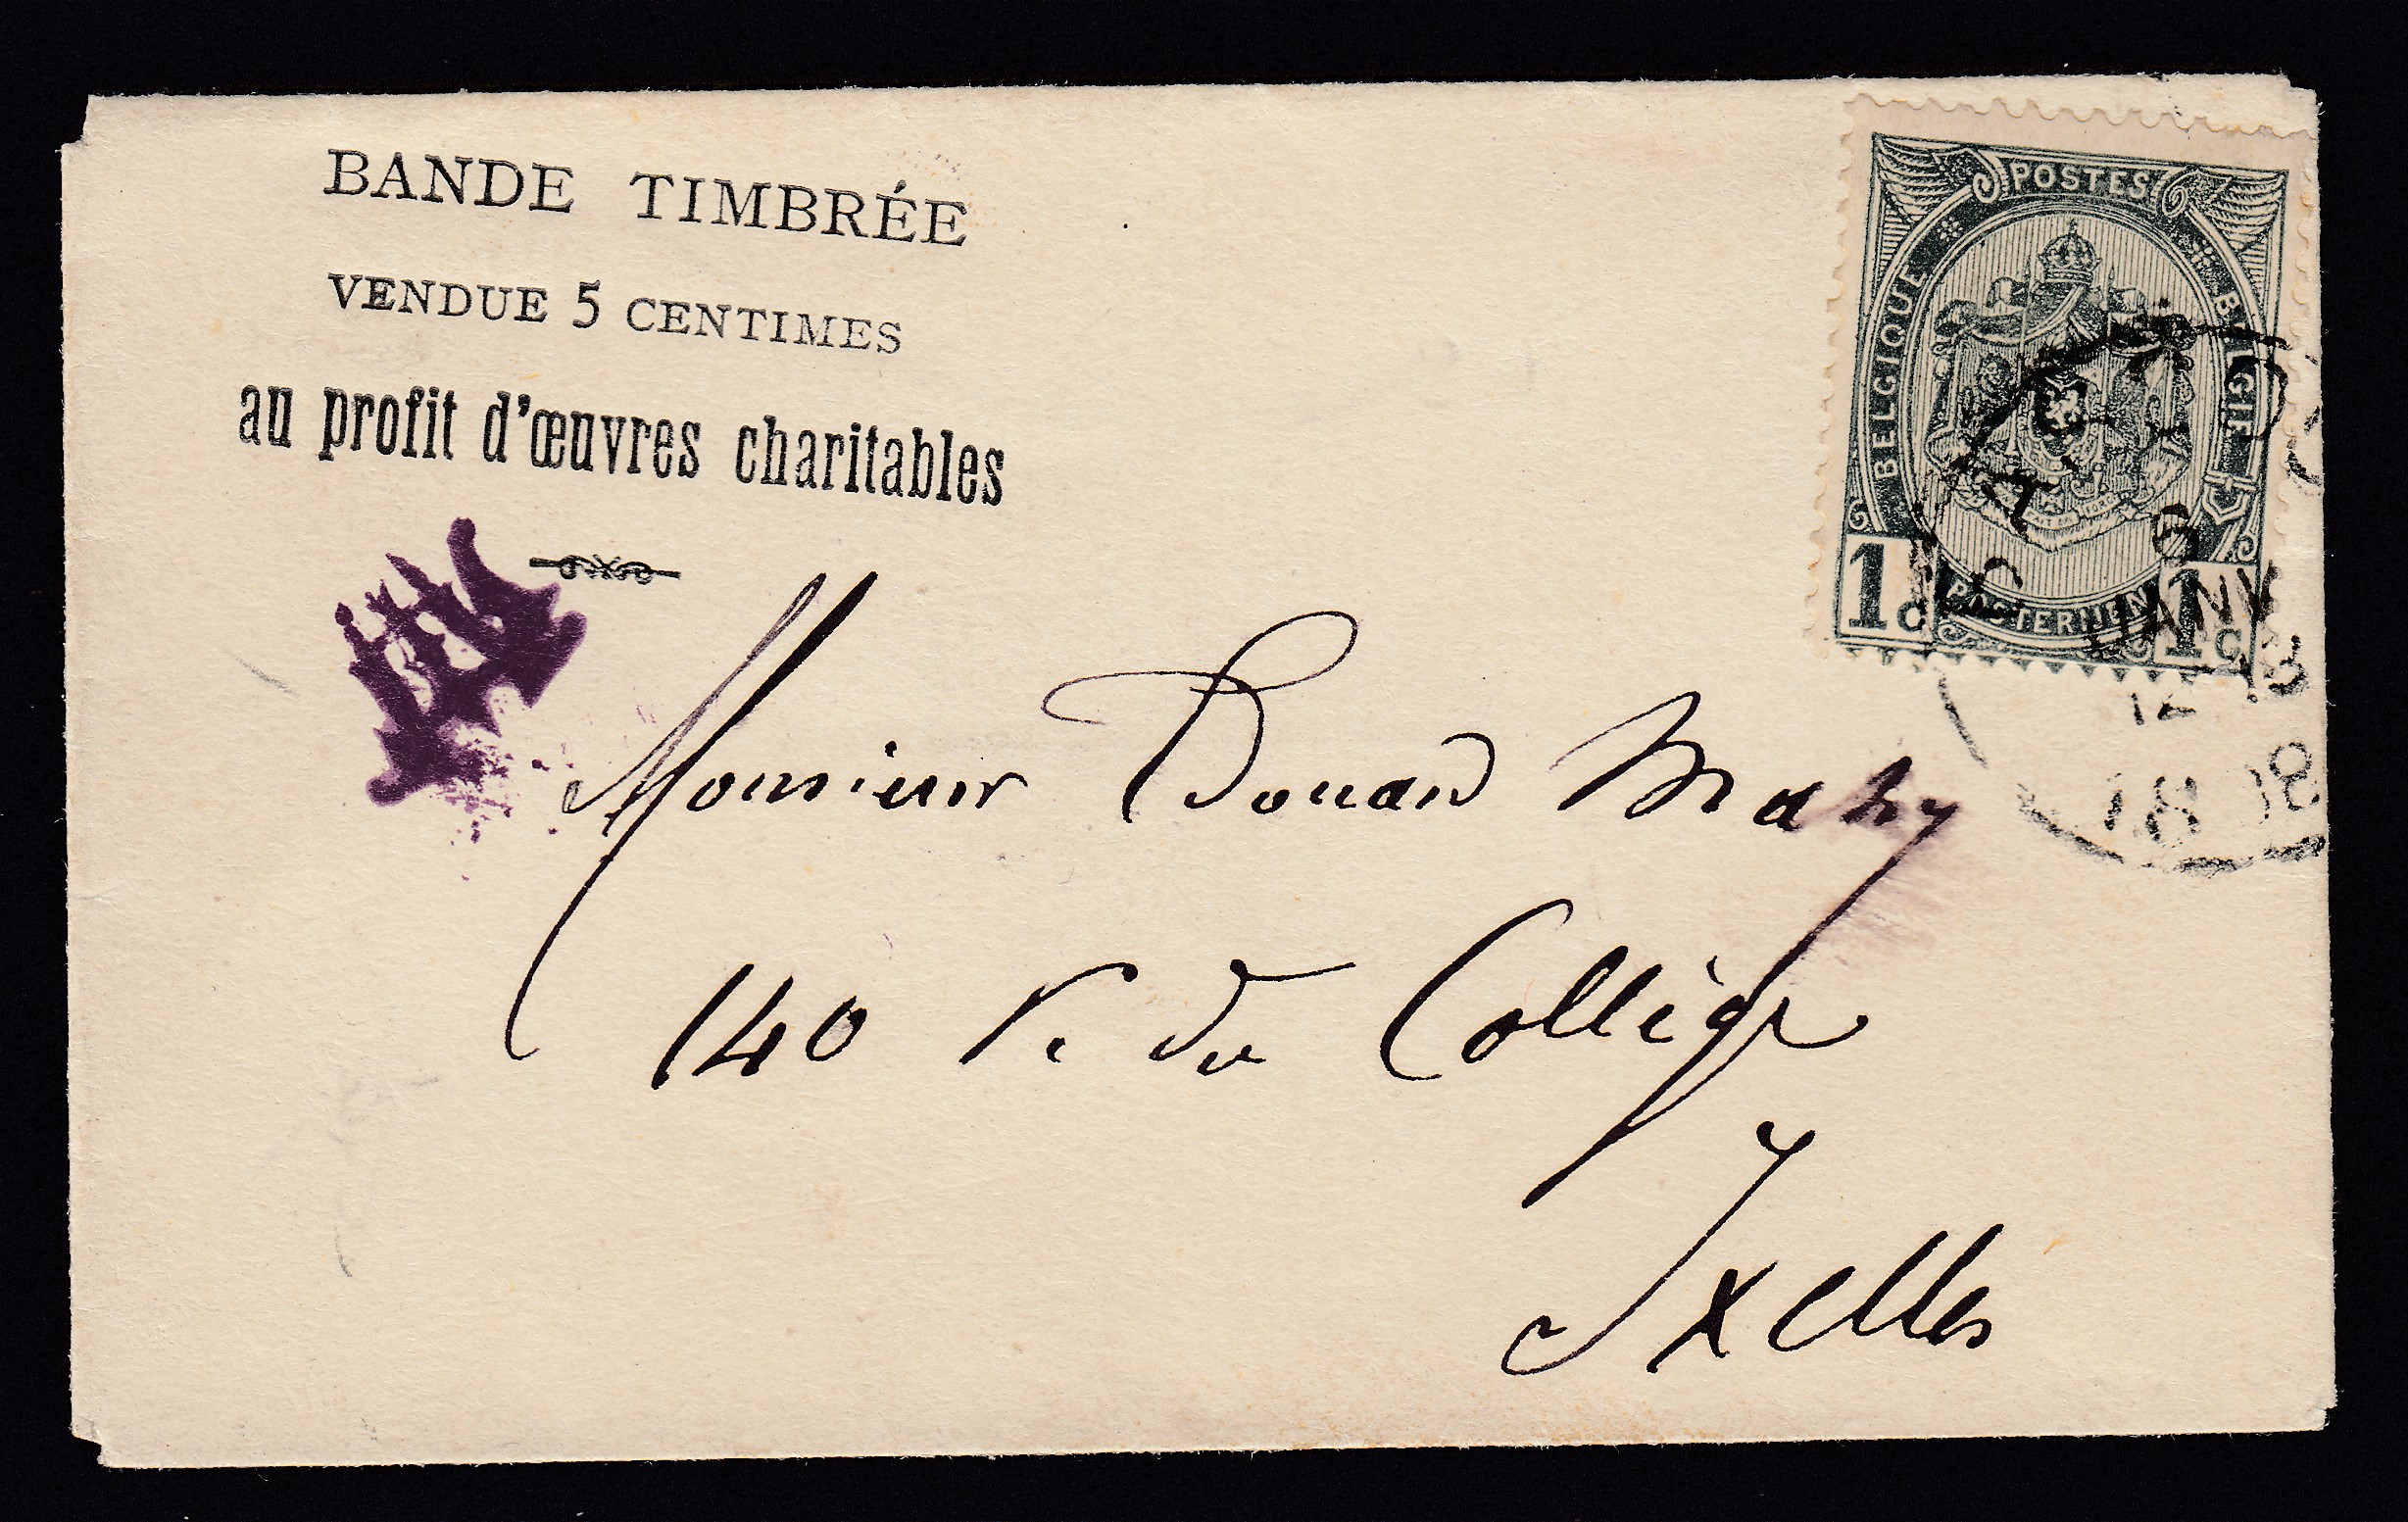 BANDE TIMBRÉE
VENDUE 5 CENTIMES
au profit d'œuvres charitables
POSTES
BELGIQUE
BELGIE
POSTERIJEN
1c
1c
6
JANV
12-13
Monsieur Douard Mahy
140 r. du Collège
Ixelles